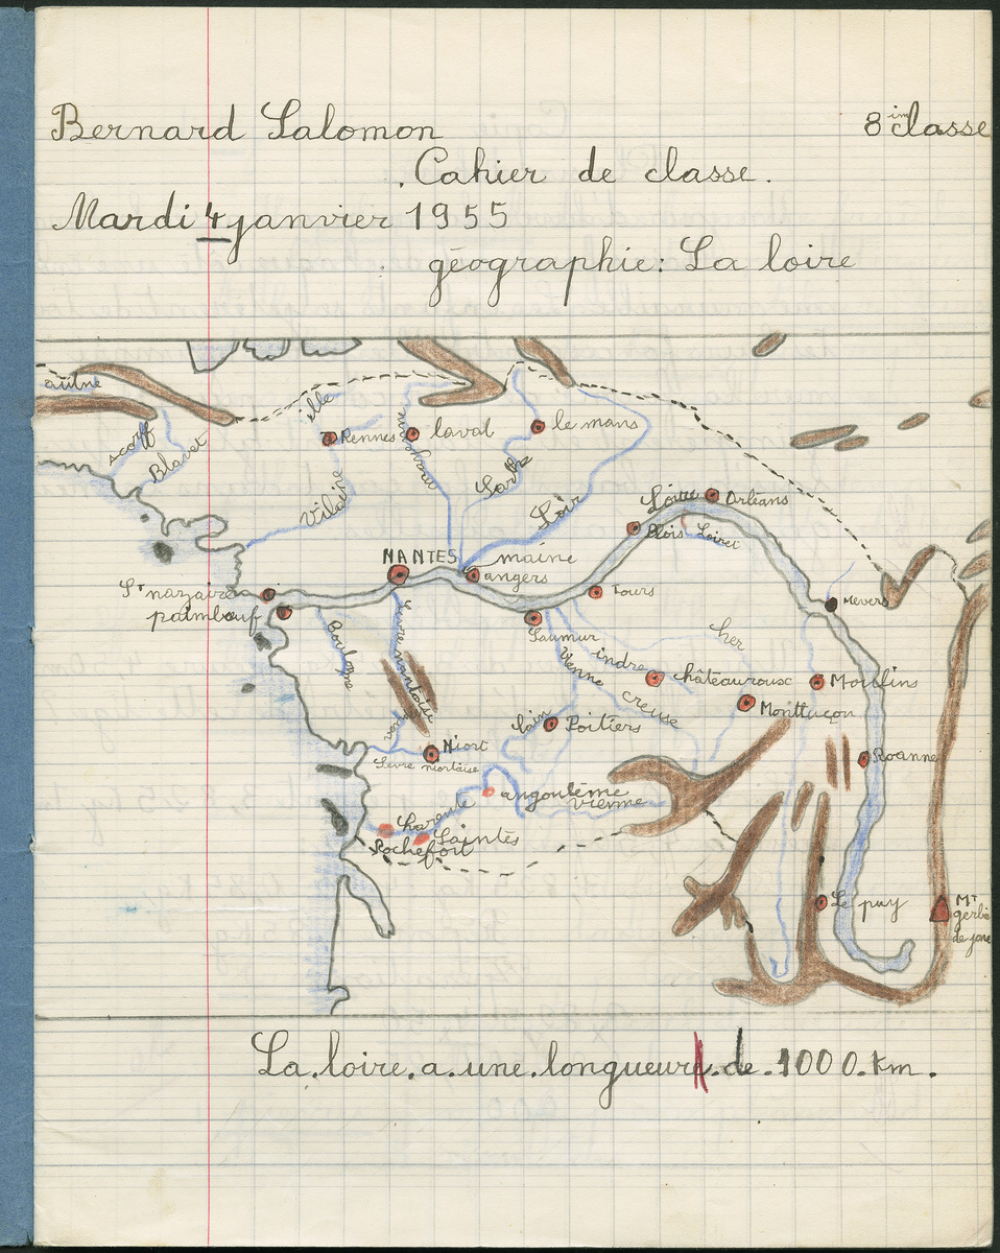 Bernard Salomon
8im classe
Cahier de classe.
Mardi 4 janvier 1955
géographie: La loire
aulne
scorff
Blavet
ille
Rennes
Vilaine
mayenne
laval
le mans
Sarthe
Loir
Loire
Orléans
Blois
Loiret
NANTES
maine
angers
St nazaire
paimbœuf
Tours
Nevers
Saumur
Boulogne
Sèvre nantaise
Vienne
indre
cher
châteauroux
creuse
Moulins
Montluçon
Clain
Poitiers
vendée
Niort
Sevre niortaise
Roanne
angoulême
vienne
Charente
Saintes
Rochefort
Le puy
Mt
gerbie
de jonc
La.loire.a.une.longueur.de.1000.km.